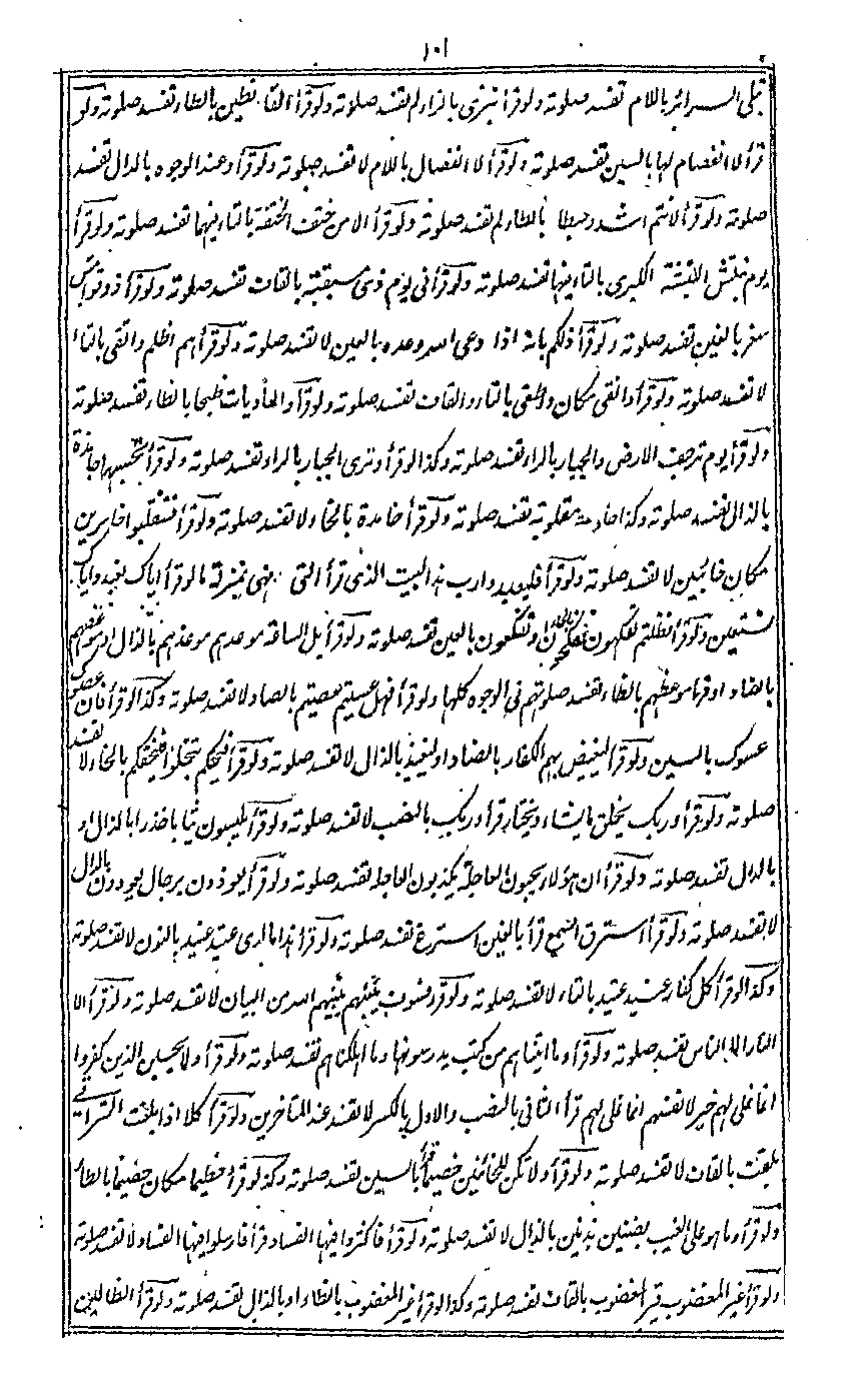 ١٠١
تبلى السرائر باللام تفسد صلوته ولو قرأ نيزى بالزاء لم تفسد صلوته ولو قرأ القانطين بالطاء تفسد صلوته ولو
قرأ لا انفصام لها بالسين تفسد صلوته ولو قرأ لا انفصال باللام لا تفسد صلوته ولو قرأ وعند الوجوه بالدال تفسد
صلوته ولو قرأ لانتم اشد بالطاء لم تفسد صلوته ولو قرأ الا من خطف الخطفة بالتاء فيهما تفسد صلوته ولو قرأ
يوم نبتش البتشة الكبرى بالتاء فيها تفسد صلوته ولو قرأ فى يوم ذى مسقبة بالقاف تفسد صلوته ولو قرأ ذوقوا مس
سغر بالغين تفسد صلوته ولو قرأ ذلكم بانه اذا دعى الله وحده بالعين لا تفسد صلوته ولو قرأ هم اظلم واتقى بالتاء
لا تفسد صلوته ولو قرأ واتقى مكان واطغى بالتاء والقاف تفسد صلوته ولو قرأ والعاديات ظبحا بالظاء تفسد صلوته
ولو قرأ يوم ترجف الارض والجبار بالراء تفسد صلوته وكذا لو قرأ وترى الجبار بالراء تفسد صلوته ولو قرأ تحسبها جامذة
بالذال تفسد صلوته وكذا مقلوبة تفسد صلوته ولو قرأ خامدة بالخاء لا تفسد صلوته ولو قرأ فتنقلبوا خاسرين
مكان خائبين لا تفسد صلوته ولو قرأ فليعبدوا رب هذا البيت الذى قرأ التى فهى بمنزلة ما لو قرأ اياك نعبد واياك
نستعين ولو قرأ فظلتم تفكهون وتفكعون بالعين تفسد صلوته ولو قرأ بل الساعة موعدهم موعذهم بالذال او موعضهم
بالضاد او قرأ موعظهم بالظاء تفسد صلوتهم فى الوجوه كلها ولو قرأ فهل عسيتم عصيتم بالصاد لا تفسد صلوته وكذا لو قرأ فان عصوك
عسوك بالسين ولو قرأ ليغيض بهم الكفار بالضاد او ليغيذ بالذال لا تفسد صلوته ولو قرأ فيحفكم تبخلوا فيخفكم بالخاء لا تفسد
صلوته ولو قرأ وربك يخلق ما يشاء ويختار قرأ وربك بالنصب لا تفسد صلوته ولو قرأ يلبسون ثيابا خذرا بالذال او
بالدال تفسد صلوته ولو قرأ ان هؤلاء يحبون العاجلة يكذبون العاجلة تفسد صلوته ولو قرأ يعوذون برجال يعودون بالدال
لا تفسد صلوته ولو قرأ استرق السمع قرأ بالغين استرغ تفسد صلوته ولو قرأ هذا ما لدى عتيد عنيد بالنون لا تفسد صلوته
وكذا لو قرأ كل كفار عنيد عتيد بالتاء لا تفسد صلوته ولو قرأ وسوف ينبئهم يبينهم الله من البيان لا تفسد صلوته ولو قرأ الا
النار الا الناس تفسد صلوته ولو قرأ وما اتيناهم من كتب يدرسونها وما اهلكناهم تفسد صلوته ولو قرأ ولا يحسبن الذين كفروا
انما نملى لهم خير لانفسهم انما نملى لهم قرأ الثانى بالنصب والاول بالكسر لا تفسد عند المتأخرين ولو قرأ كلا اذا بلغت التراقى
بلقت بالقاف لا تفسد صلوته ولو قرأ ولا تكن للخائنين خصيما قرأ بالسين تفسد صلوته وكذا لو قرأ خطيما مكان خصيما بالطاء
ولو قرأ وما هو على الغيب بضنين بذنين بالذال لا تفسد صلوته ولو قرأ فاكثروا فيها الفساد قرأ فارسلوا فيها الفساد لا تفسد صلوته
ولو قرأ غير المغضوب قير المغضوب بالقاف تفسد صلوته وكذا لو قرأ غير المغضوب بالظاء او بالذال تفسد صلوته ولو قرأ الظالين